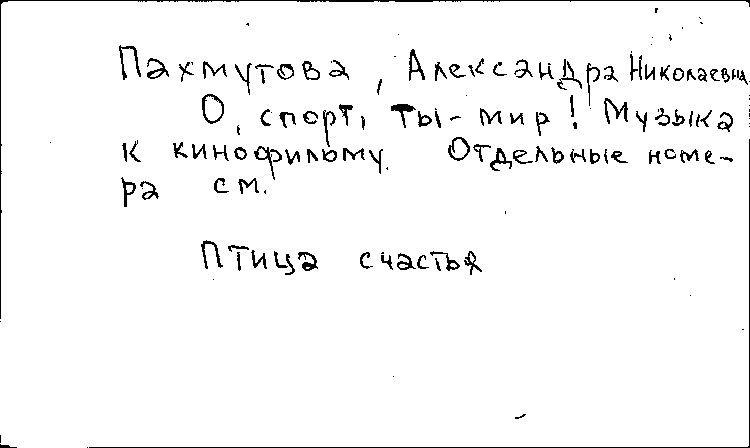 Пахмутова, Александра Николаевна
О, спорт, ты - мир! Музыка
к кинофильму. Отдельные номе-
ра см.
Птица счастья